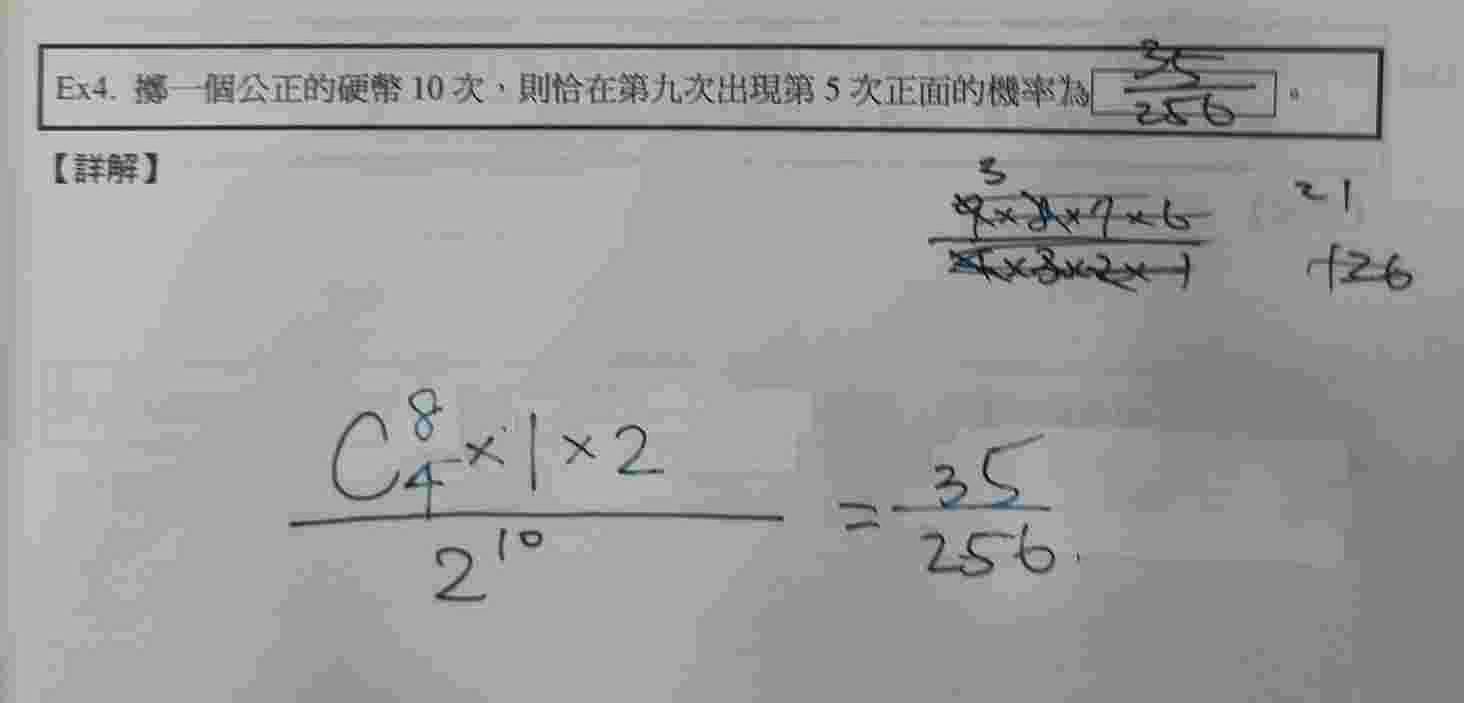 Ex4. 擲一個公正的硬幣 10 次，則恰在第九次出現第 5 次正面的機率為 35/256 。
【詳解】
3
9×8×7×6 / 4×3×2×1
21
126
C⁸₄×1×2 / 2¹⁰ = 35/256.